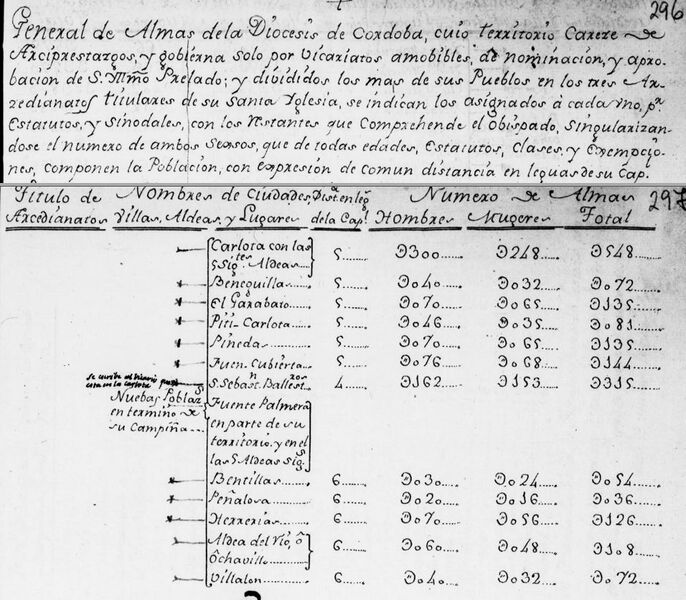 296
General de Almas dela Diocesis de Cordoba, cuio territorio Carece de
Arciprestazgos, y gobierna solo por vicariatos amobibles, de nominacion, y apro-
bacion de S. Yllmo Prelado; y divididos los mas de sus Pueblos en los tres Ar-
zedianatos titulares de su Santa Yglesia, se indican los asignados à cada vno, pr.
Estatutos, y Sinodales, con los restantes que Comprehende el obispado, Singularizan-
dose el numero de ambos Sexsos, que de todas edades, Estatutos, Clases, y Exempcio-
nes, componen la Poblacion, con expresion de comun distancia en leguas de su Cap.
297
Titulo de Nombres de Ciudades, Distr. en leg. Numero de Almas
Arcedianatos Villas, Aldeas, y Lugares dela Capl. Hombres Mugeres Total
Carlota con las
5 Sigtes. Aldeas 5 Ɔ300 Ɔ248 Ɔ548
Benequilla 5 Ɔ040 Ɔ032 Ɔ072
El Garabato 5 Ɔ070 Ɔ065 Ɔ135
Piti-Carlota 5 Ɔ046 Ɔ035 Ɔ081
Pineda 5 Ɔ070 Ɔ065 Ɔ135
Fuen-Cubierta 5 Ɔ076 Ɔ068 Ɔ144
S. Sebastn. Ballestros 4 Ɔ162 Ɔ153 Ɔ315
Nuebas Poblas.
en termino de
su Campiña
Fuente Palmera
en parte de su
territorio, y en el
las 5 Aldeas sigs.
Bentillas 6 Ɔ030 Ɔ024 Ɔ054
Peñalosa 6 Ɔ020 Ɔ016 Ɔ036
Herrerias 6 Ɔ070 Ɔ056 Ɔ126
Aldea del Rio, ô
Ôchavillo 6 Ɔ060 Ɔ048 Ɔ108
Villalon 6 Ɔ040 Ɔ032 Ɔ072